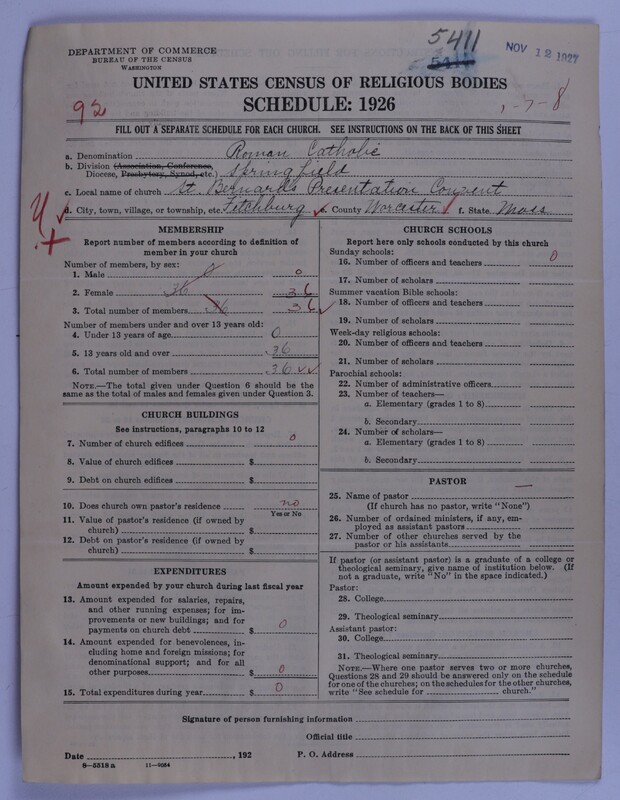 5411
5410
NOV 12 1927
DEPARTMENT OF COMMERCE
BUREAU OF THE CENSUS
WASHINGTON
UNITED STATES CENSUS OF RELIGIOUS BODIES
SCHEDULE: 1926
92
1-7-8
FILL OUT A SEPARATE SCHEDULE FOR EACH CHURCH. SEE INSTRUCTIONS ON THE BACK OF THIS SHEET
a. Denomination Roman Catholic
b. Division (Association, Conference, Diocese, Presbytery, Synod, etc.) Springfield
c. Local name of church St. Bernard's Presentation Convent
d. City, town, village, or township, etc. Fitchburg e. County Worcester f. State Mass
MEMBERSHIP
Report number of members according to definition of
member in your church
Number of members, by sex:
1. Male 0 0
2. Female 36 36
3. Total number of members 36 36
Number of members under and over 13 years old:
4. Under 13 years of age 0
5. 13 years old and over 36
6. Total number of members 36
NOTE.—The total given under Question 6 should be
same as the total of males and females given under Question 3.
CHURCH BUILDINGS
See instructions, paragraphs 10 to 12
7. Number of church edifices 0
8. Value of church edifices $
9. Debt on church edifices $
10. Does church own pastor's residence no
Yes or No
11. Value of pastor's residence (if owned by
church) $
12. Debt on pastor's residence (if owned by
church) $
EXPENDITURES
Amount expended by your church during last fiscal year
13. Amount expended for salaries, repairs,
and other running expenses; for im-
provements or new buildings; and for
payments on church debt $ 0
14. Amount expended for benevolences, in-
cluding home and foreign missions; for
denominational support; and for all
other purposes $ 0
15. Total expenditures during year $ 0
CHURCH SCHOOLS
Report here only schools conducted by this church
Sunday schools:
16. Number of officers and teachers 0
17. Number of scholars
Summer vacation Bible schools:
18. Number of officers and teachers
19. Number of scholars
Week-day religious schools:
20. Number of officers and teachers
21. Number of scholars
Parochial schools:
22. Number of administrative officers
23. Number of teachers—
a. Elementary (grades 1 to 8)
b. Secondary
24. Number of scholars—
a. Elementary (grades 1 to 8)
b. Secondary
PASTOR
25. Name of pastor —
(If church has no pastor, write "None")
26. Number of ordained ministers, if any, em-
ployed as assistant pastors
27. Number of other churches served by the
pastor or his assistants
If pastor (or assistant pastor) is a graduate of a college or
theological seminary, give name of institution below. (If
not a graduate, write "No" in the space indicated.)
Pastor:
28. College
29. Theological seminary
Assistant pastor:
30. College
31. Theological seminary
NOTE.—Where one pastor serves two or more churches,
Questions 28 and 29 should be answered only on the schedule
for one of the churches; on the schedules for the other churches,
write "See schedule for church."
Signature of person furnishing information
Official title
Date , 192 P. O. Address
8—5518 a 11—9084